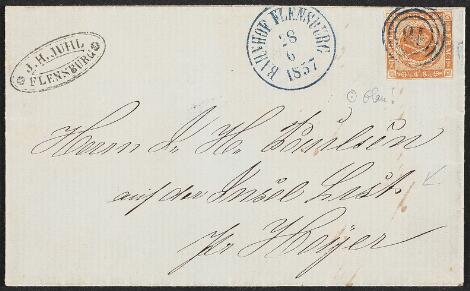 J. H. JUHL
FLENSBURG
BAHNHOF FLENSBURG
28
6
1857
Herrn J. H. Paulsen
auf der Insel List
pr Hoyer